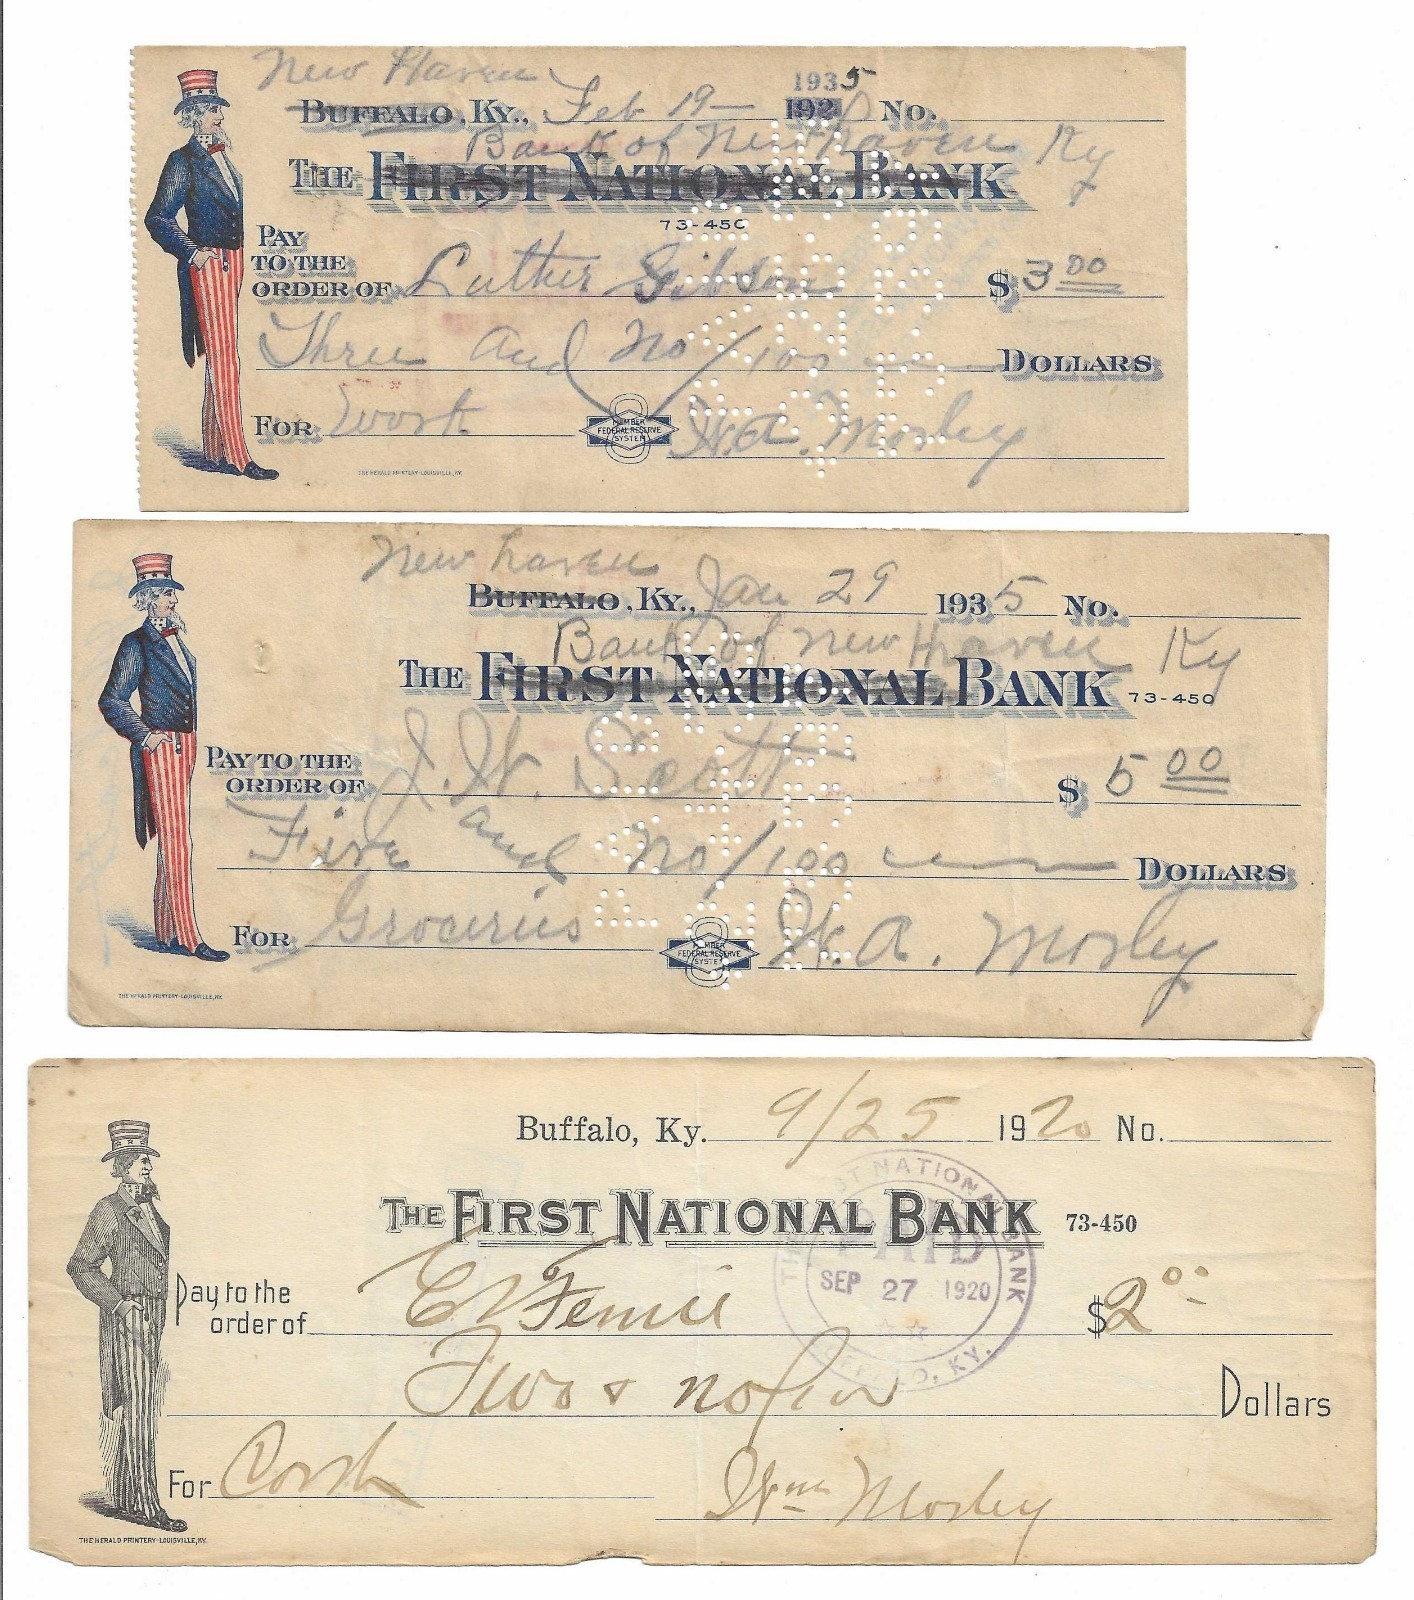 New Haven
BUFFALO, KY., Feb 19 1935 192 No.
Bank of New Haven Ky
THE FIRST NATIONAL BANK
73-450
PAY TO THE ORDER OF Luther Gibson $ 3 00
Three and No/100 DOLLARS
FOR Work W. A. Mosley
MEMBER FEDERAL RESERVE SYSTEM
THE HERALD PRINTERY-LOUISVILLE, KY.
New Haven
BUFFALO, KY., Jan 29 1935 No.
Bank of New Haven Ky
THE FIRST NATIONAL BANK 73-450
PAY TO THE ORDER OF J. W. Scott $ 5 00
Five and No/100 DOLLARS
FOR Groceries W. A. Mosley
MEMBER FEDERAL RESERVE SYSTEM
THE HERALD PRINTERY-LOUISVILLE, KY.
Buffalo, Ky. 9/25 1920 No.
THE FIRST NATIONAL BANK 73-450
THE FIRST NATIONAL BANK
PAID
SEP 27 1920
BUFFALO, KY.
Pay to the order of $2 00
Two & no/100 Dollars
For Cash Wm Mosley
THE HERALD PRINTERY-LOUISVILLE, KY.